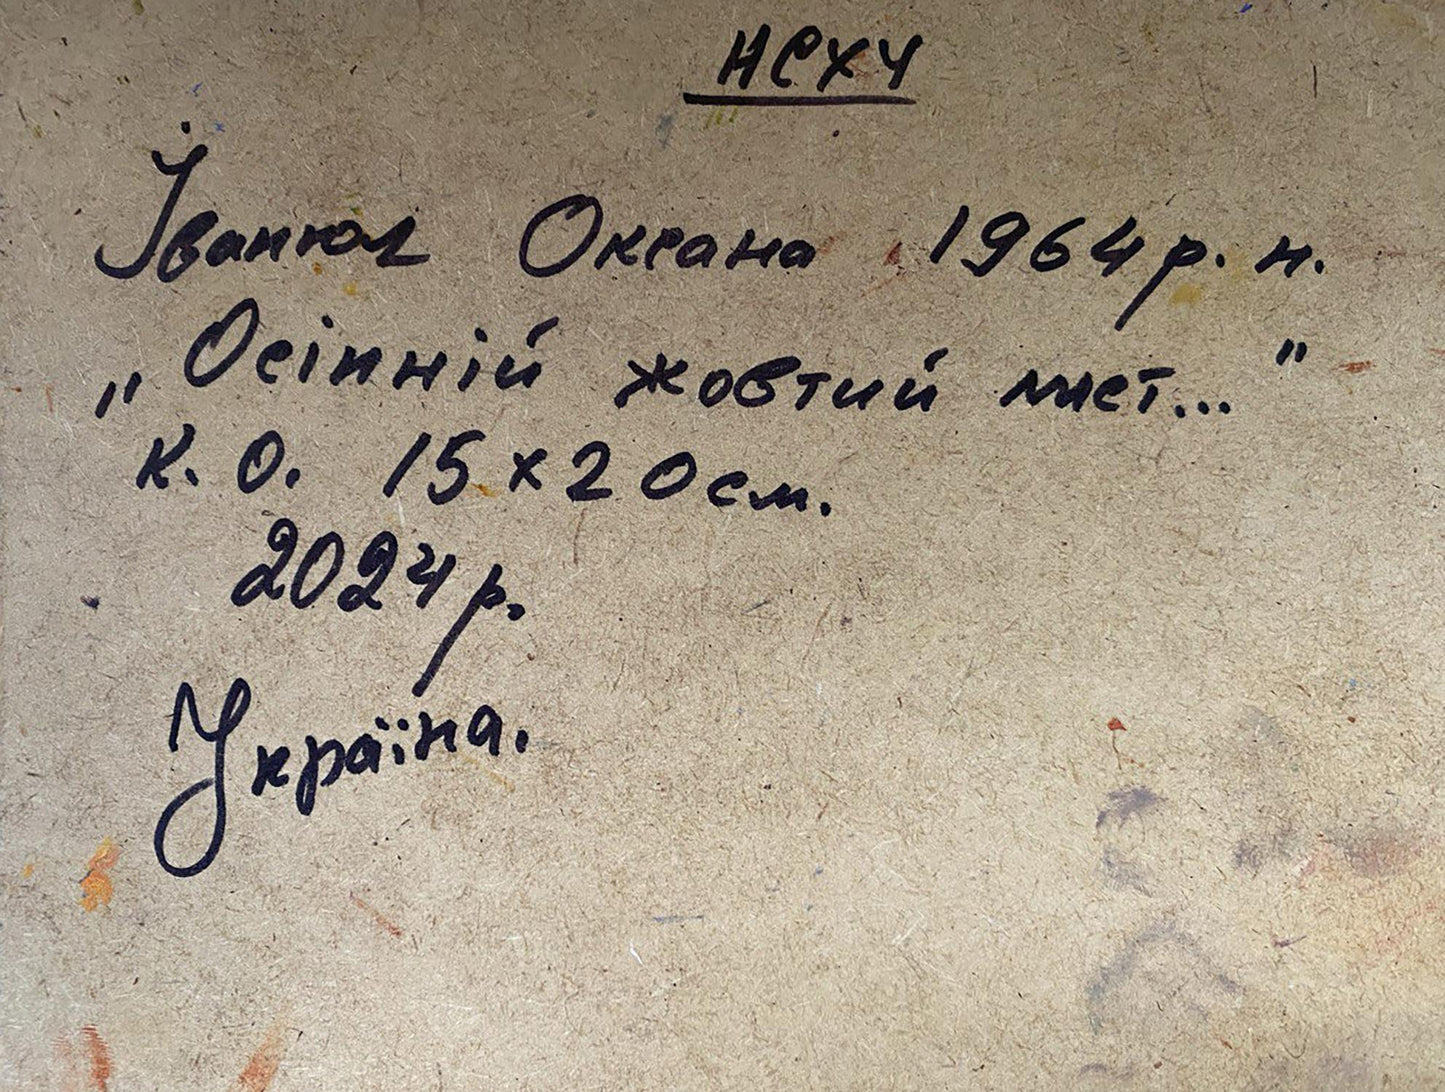 НСХУ
Іванюк Оксана 1964 р. н.
„Осінній жовтий лист..."
К. О. 15 х 20 см.
2024 р.
Україна.